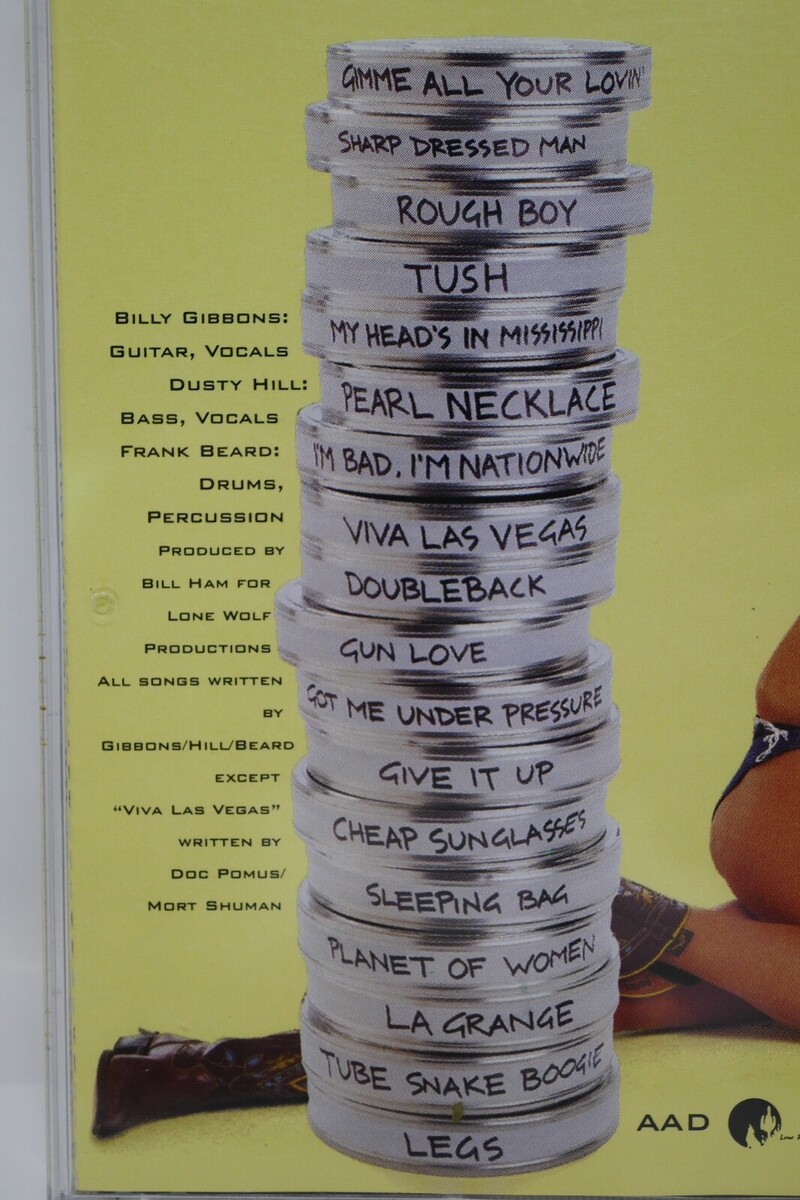 GIMME ALL YOUR LOVIN'
SHARP DRESSED MAN
ROUGH BOY
TUSH
MY HEAD'S IN MISSISSIPPI
PEARL NECKLACE
I'M BAD, I'M NATIONWIDE
VIVA LAS VEGAS
DOUBLEBACK
GUN LOVE
GOT ME UNDER PRESSURE
GIVE IT UP
CHEAP SUNGLASSES
SLEEPING BAG
PLANET OF WOMEN
LA GRANGE
TUBE SNAKE BOOGIE
LEGS
BILLY GIBBONS:
GUITAR, VOCALS
DUSTY HILL:
BASS, VOCALS
FRANK BEARD:
DRUMS,
PERCUSSION
PRODUCED BY
BILL HAM FOR
LONE WOLF
PRODUCTIONS
ALL SONGS WRITTEN
BY
GIBBONS/HILL/BEARD
EXCEPT
"VIVA LAS VEGAS"
WRITTEN BY
DOC POMUS/
MORT SHUMAN
AAD